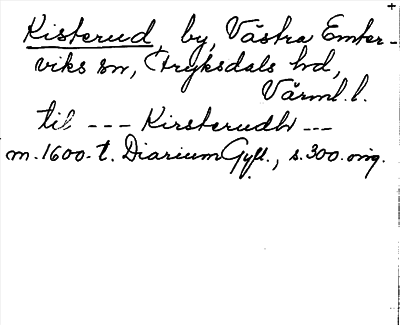 Kisterud, by, Västra Emter-
viks sn, Fryksdals hd,
Värml. l.
til --- Kirsterudh ---
m. 1600-t. Diarium Gyll., s. 300. orig.